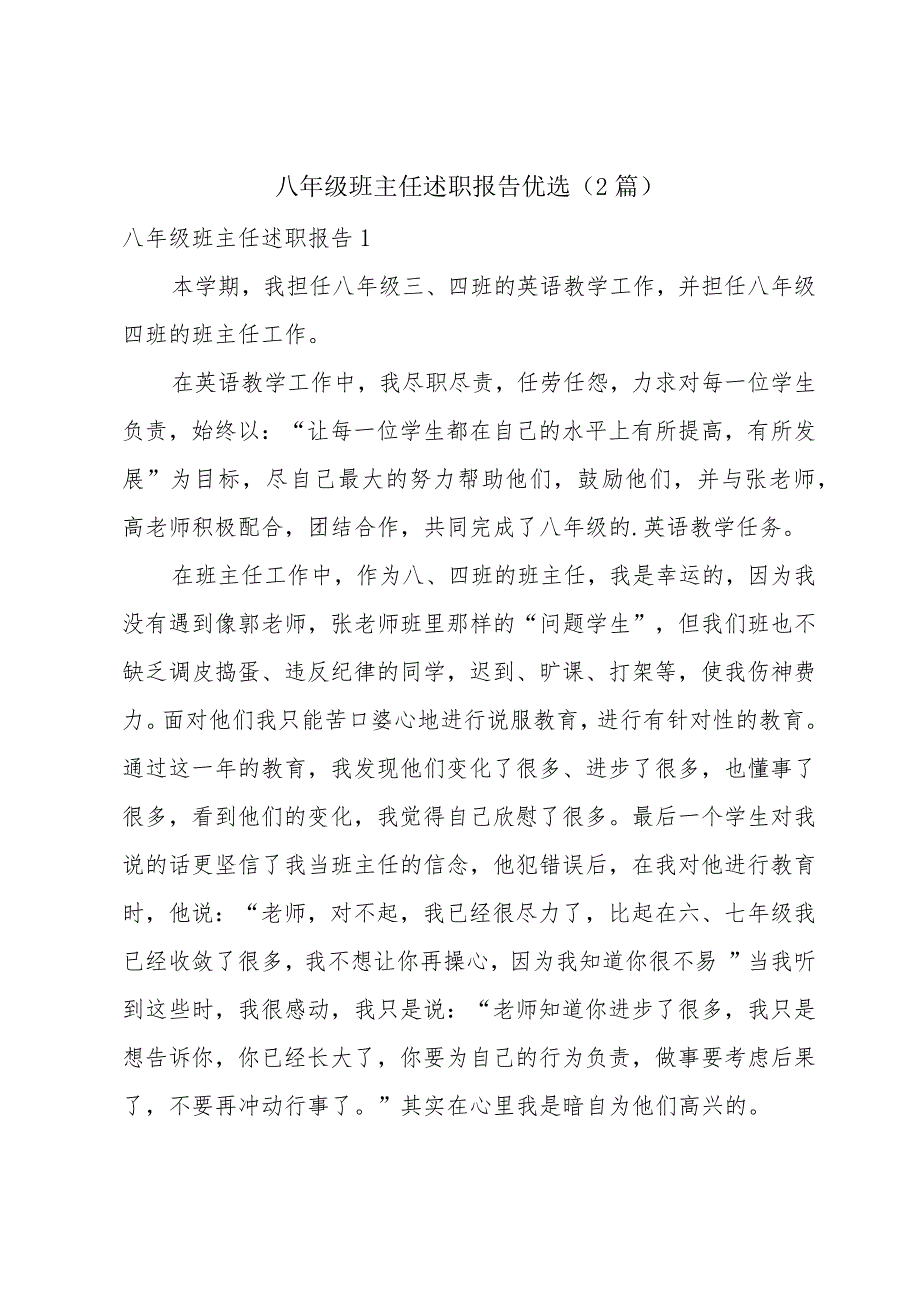 八年级班主任述职报告优选（2篇）
八年级班主任述职报告1
本学期，我担任八年级三、四班的英语教学工作，并担任八年级
四班的班主任工作。
在英语教学工作中，我尽职尽责，任劳任怨，力求对每一位学生
负责，始终以：“让每一位学生都在自己的水平上有所提高，有所发
展”为目标，尽自己最大的努力帮助他们，鼓励他们，并与张老师，
高老师积极配合，团结合作，共同完成了八年级的.英语教学任务。
在班主任工作中，作为八、四班的班主任，我是幸运的，因为我
没有遇到像郭老师，张老师班里那样的“问题学生”，但我们班也不
缺乏调皮捣蛋、违反纪律的同学，迟到、旷课、打架等，使我伤神费
力。面对他们我只能苦口婆心地进行说服教育，进行有针对性的教育。
通过这一年的教育，我发现他们变化了很多、进步了很多，也懂事了
很多，看到他们的变化，我觉得自己欣慰了很多。最后一个学生对我
说的话更坚信了我当班主任的信念，他犯错误后，在我对他进行教育
时，他说：“老师，对不起，我已经很尽力了，比起在六、七年级我
已经收敛了很多，我不想让你再操心，因为我知道你很不易 ”当我听
到这些时，我很感动，我只是说：“老师知道你进步了很多，我只是
想告诉你，你已经长大了，你要为自己的行为负责，做事要考虑后果
了，不要再冲动行事了。”其实在心里我是暗自为他们高兴的。